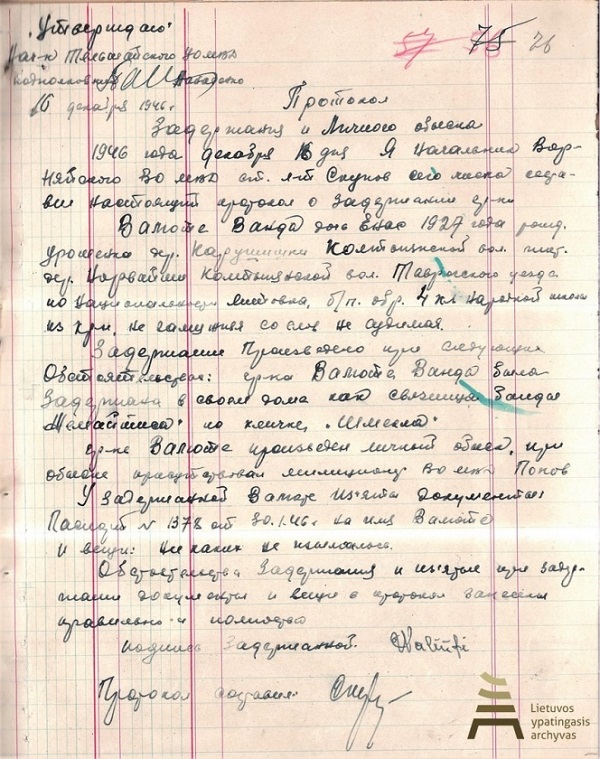 Утверждаю:
57 75 76
Нач-к Тельшяйского УО МВД
подполковник
16 декабря 1946 г.
Протокол
Задержания и Личного обыска
1946 года декабря 16 дня Я Начальник Вор-
нябского ВО МВД ст. л-т Скупов сего числа соста-
вил настоящий протокол о задержании гр-ки
Валюте Ванда дочь Енас 1927 года рожд.
уроженка дер. Колтыненской вол. жит.
дер. Норвайши Колтыненской вол. Таврагского уезда
по национальности литовка, б/п. обр. 4 кл народной школы
из кр-н, не замужняя со слов не судимая.
Задержание Произведено при следующих
Обстоятельствах: гр-ка Валюте Ванда была
Задержана в своем доме как связница банды
по кличке
гр-ке Валюте произведен личный обыск, при
обыске присутствовал милиционер ВО МВД Попов
У Задержанной Валюте Изъяты Документы:
Паспорт № 1378 от 30.1.46 г. на имя Валюте
и вещи: Ни каких не изымалось.
Обстоятельства Задержания и изъятые при задер-
жании документы и вещи в протокол занесены
правильно и полностью
подпись Задержанной.
Протокол составил:
Lietuvos
ypatingasis
archyvas